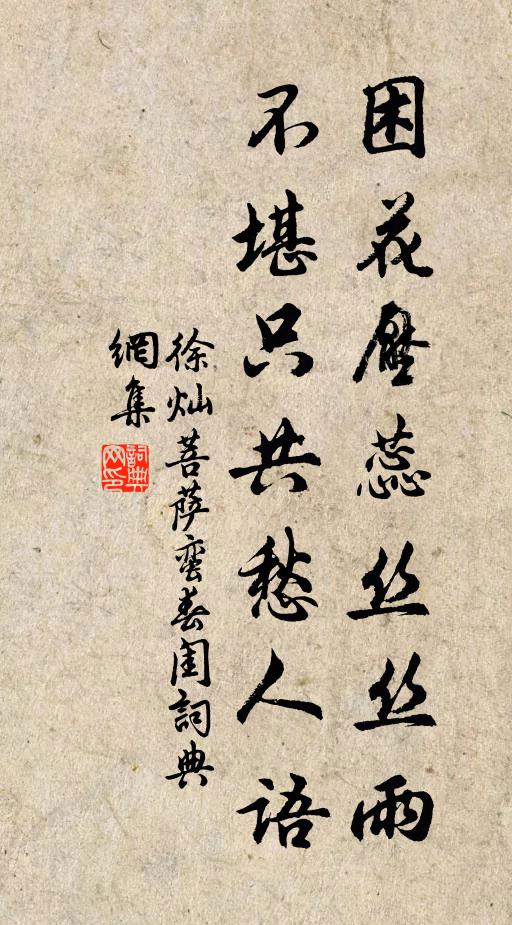 困花壓蕊丝丝雨
不堪只共愁人语
徐灿菩萨蛮春闺詞典
網集
詞典网印